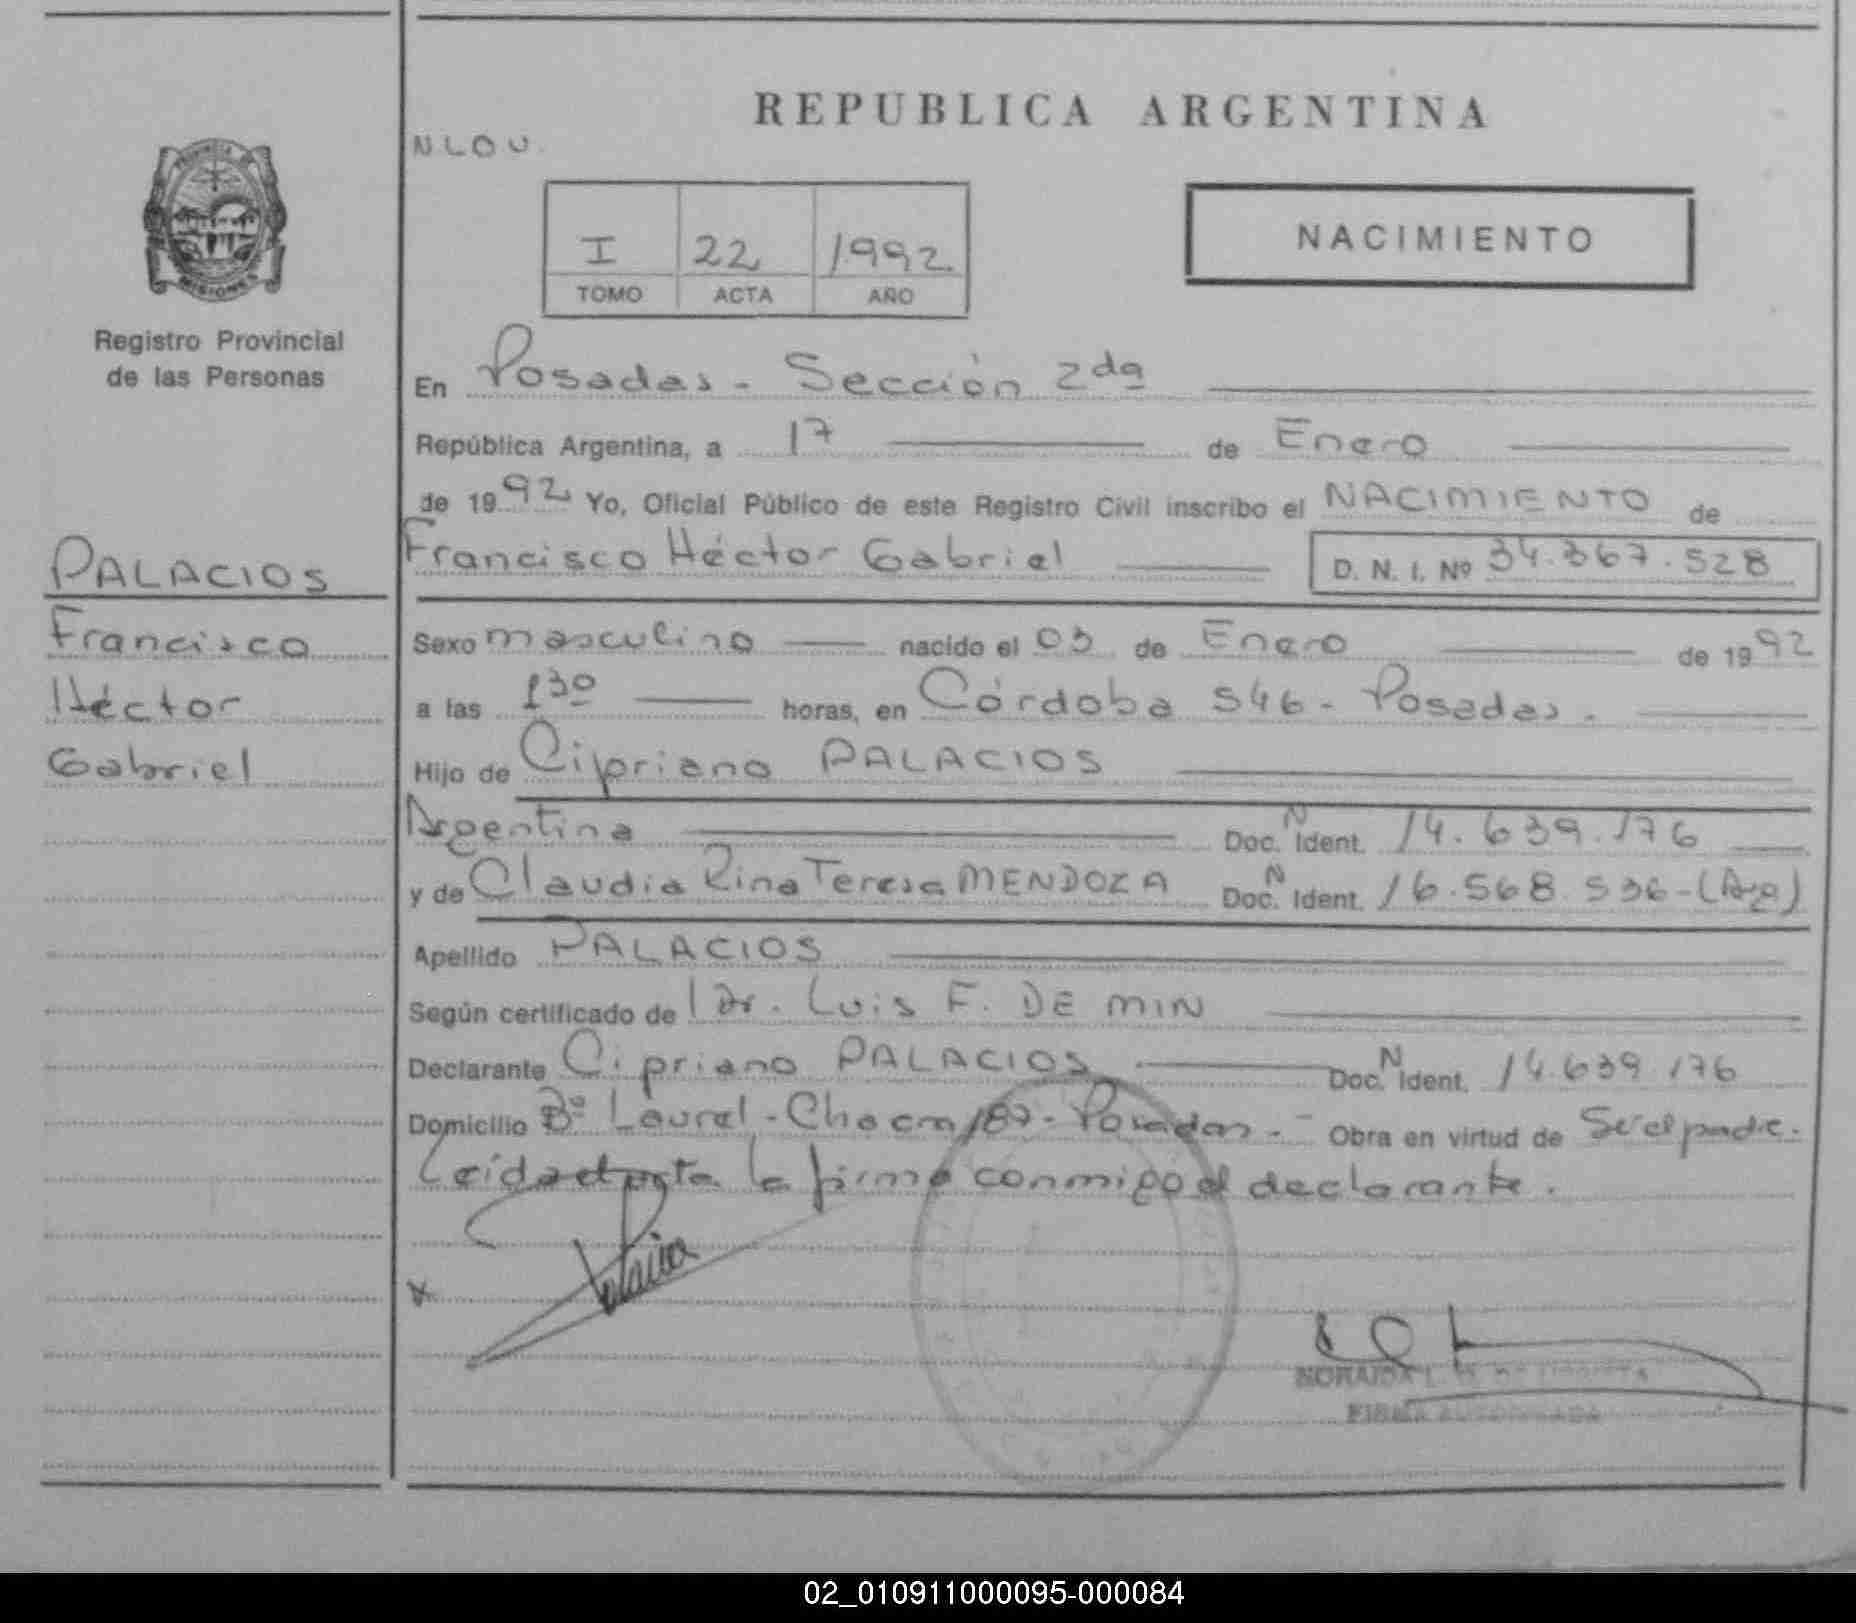 REPUBLICA ARGENTINA
N L O U.
NACIMIENTO
I 22 1992.
TOMO ACTA AÑO
MISIONES
Registro Provincial
de las Personas
En Posadas - Sección 2da
República Argentina, a 17 de Enero
de 1992 Yo, Oficial Público de este Registro Civil inscribo el NACIMIENTO de
PALACIOS
Francisco Héctor Gabriel D. N. I. Nº 34.367.528
Francisco
Héctor
Gabriel
Sexo masculino nacido el 03 de Enero de 1992
a las 130 horas, en Córdoba 546 - Posadas.
Hijo de Cipriano PALACIOS
Argentina Doc. N Ident. 14.639.176
y de Claudia Rina Teresa MENDOZA Doc. N Ident. 16.568.536 - (Arg)
Apellido PALACIOS
Según certificado de Dr. Luis F. DE MIN
Declarante Cipriano PALACIOS Doc. N Ident. 14.639.176
Domicilio Bº Laurel - Chacra 187 - Posadas. - Obra en virtud de Ser el padre.
Leída el acta la firma conmigo el declarante.
x
FIRMA AUTORIZADA
02_010911000095-000084